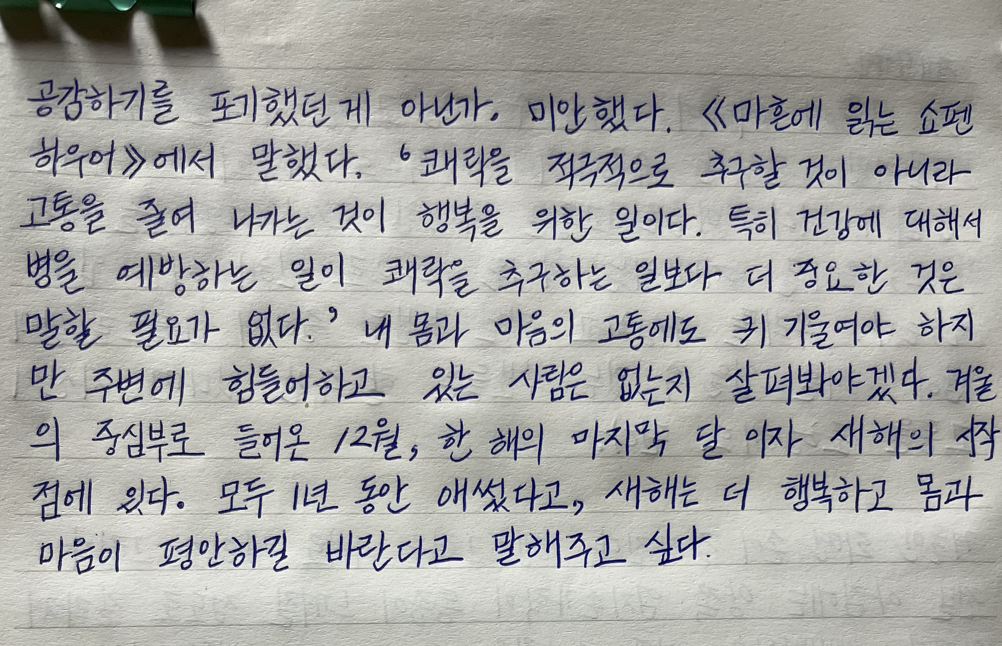 공감하기를 포기했던 게 아닌가. 미안했다. 《마흔에 읽는 쇼펜
하우어》에서 말했다. ‘쾌락을 적극적으로 추구할 것이 아니라
고통을 줄여 나가는 것이 행복을 위한 일이다. 특히 건강에 대해서
병을 예방하는 일이 쾌락을 추구하는 일보다 더 중요한 것은
말할 필요가 없다.’ 내 몸과 마음의 고통에도 귀 기울여야 하지
만 주변에 힘들어하고 있는 사람은 없는지 살펴봐야겠다. 겨울
의 중심부로 들어온 12월, 한 해의 마지막 달 이자 새해의 시작
점에 있다. 모두 1년 동안 애썼다고, 새해는 더 행복하고 몸과
마음이 평안하길 바란다고 말해주고 싶다.